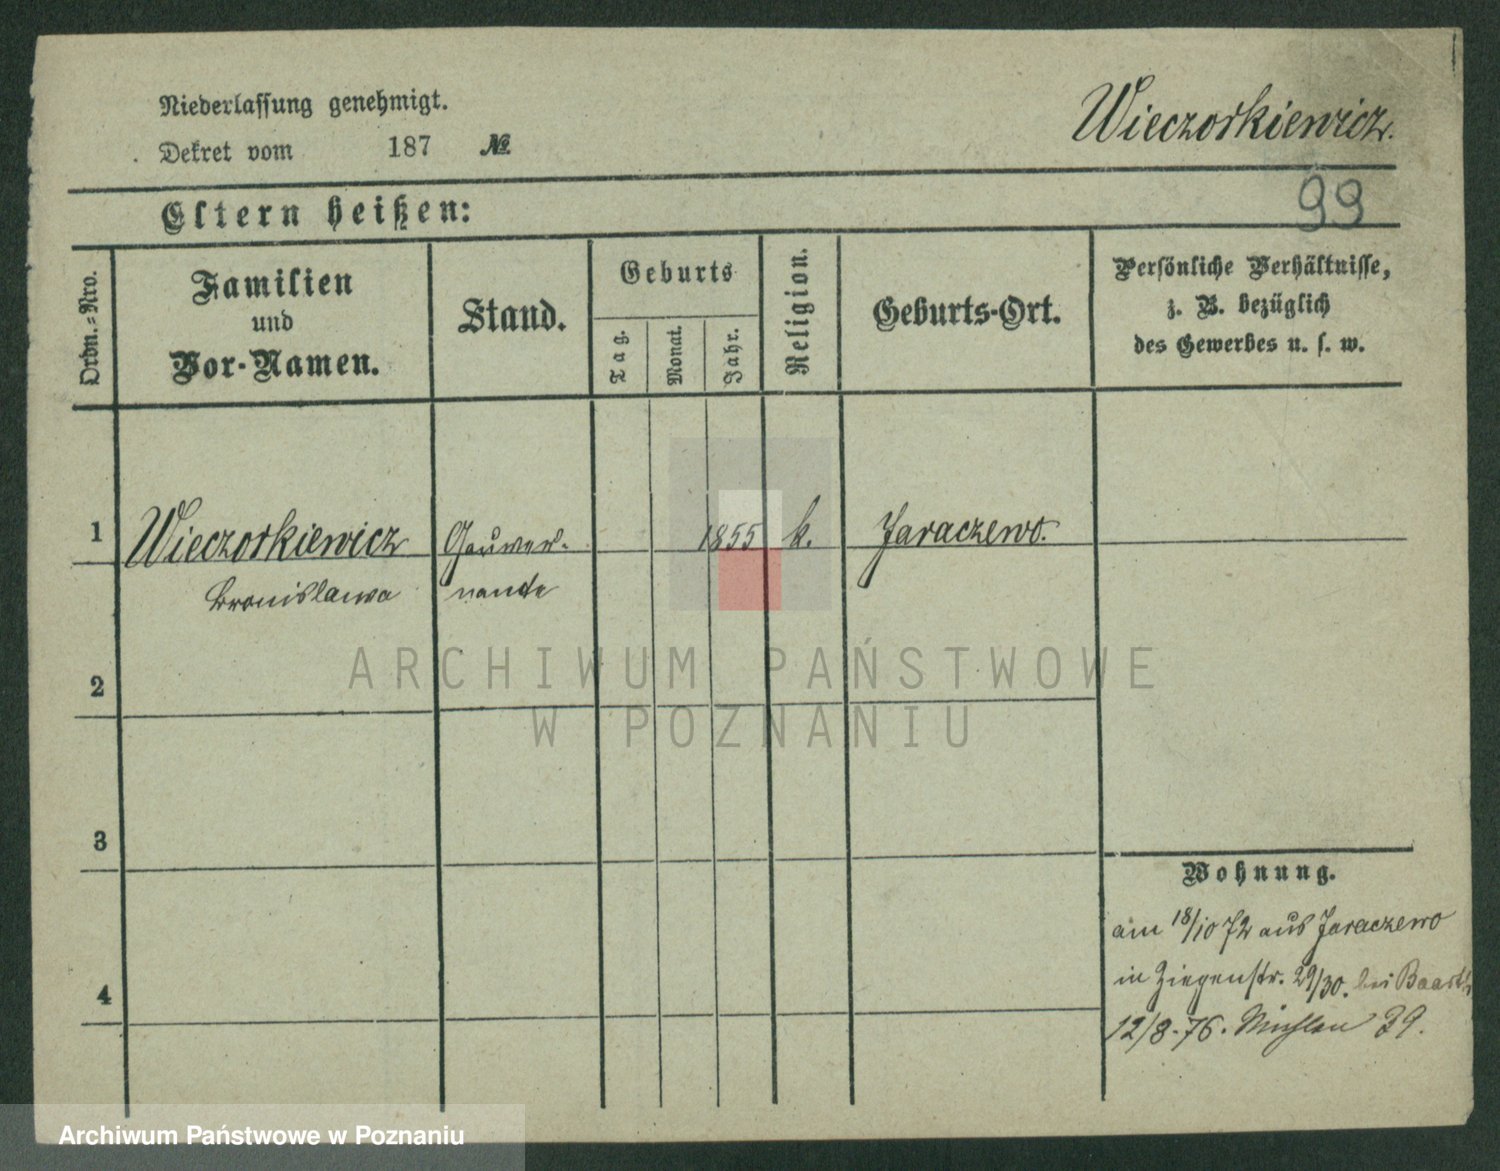 Niederlassung genehmigt.
Dekret vom 187 №
Wieczorkiewicz.
99
Eltern heißen:
Ordn.=Nro.
Familien
und
Vor-Namen.
Stand.
Geburts
Tag.
Monat.
Jahr.
Religion.
Geburts-Ort.
Persönliche Verhältnisse,
z. B. bezüglich
des Gewerbes u. s. w.
1 Wieczorkiewicz Gouver- 1855 k. Jaraczewo.
Bronislawa nante
2
3
4
Wohnung.
am 18/10 72 aus Jaraczewo
in Ziegenstr. 29/30. bei
12/8.76. 39.
ARCHIWUM PAŃSTWOWE
W POZNANIU
Archiwum Państwowe w Poznaniu